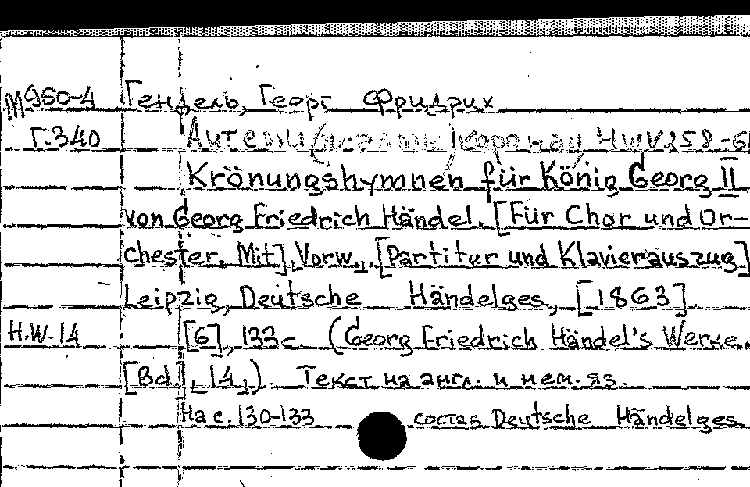 М960-4 Гендель, Георг Фридрих
Г.340 HWV 258-
Krönungshymnen für König Georg II
von Georg Friedrich Händel. [Für Chor und Or-
chester. Mit] Vorw., [Partitur und Klavierauszug]
Leipzig, Deutsche Händelges, [1863]
H.W. 14 [6], 133 с. (Georg Friedrich Händel's Werke.
[Bd.], 14,). Текст на англ. и нем. яз.
На с. 130-133 состав Deutsche Händelges